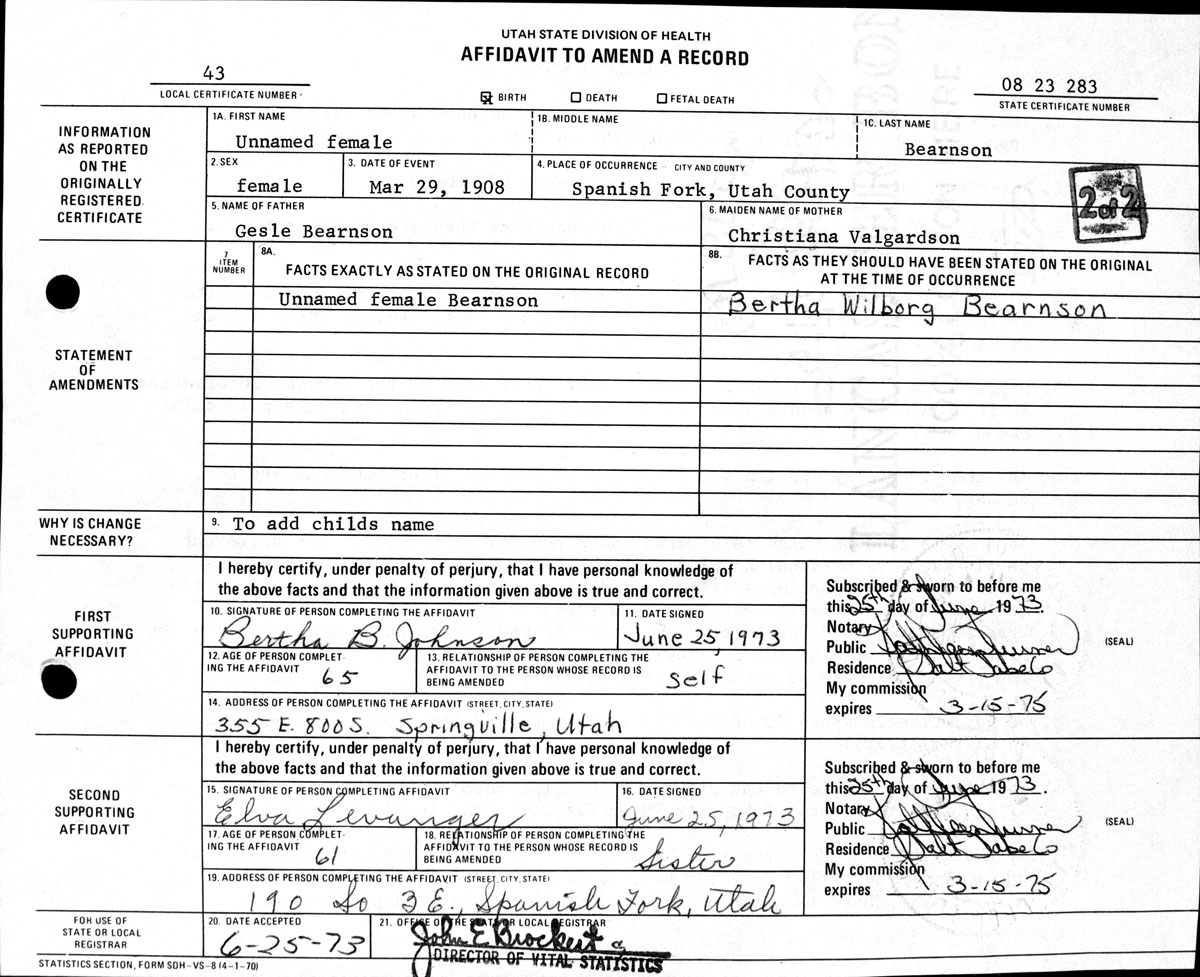 UTAH STATE DIVISION OF HEALTH
AFFIDAVIT TO AMEND A RECORD
43
LOCAL CERTIFICATE NUMBER
BIRTH DEATH FETAL DEATH
08 23 283
STATE CERTIFICATE NUMBER
INFORMATION
AS REPORTED
ON THE
ORIGINALLY
REGISTERED
CERTIFICATE
1A. FIRST NAME
Unnamed female
1B. MIDDLE NAME
1C. LAST NAME
Bearnson
2. SEX
female
3. DATE OF EVENT
Mar 29, 1908
4. PLACE OF OCCURRENCE - CITY AND COUNTY
Spanish Fork, Utah County
2 of 2
5. NAME OF FATHER
Gesle Bearnson
6. MAIDEN NAME OF MOTHER
Christiana Valgardson
STATEMENT
OF
AMENDMENTS
7
ITEM
NUMBER
8A.
FACTS EXACTLY AS STATED ON THE ORIGINAL RECORD
8B.
FACTS AS THEY SHOULD HAVE BEEN STATED ON THE ORIGINAL
AT THE TIME OF OCCURRENCE
Unnamed female Bearnson
Bertha Wilborg Bearnson
WHY IS CHANGE
NECESSARY?
9. To add childs name
FIRST
SUPPORTING
AFFIDAVIT
I hereby certify, under penalty of perjury, that I have personal knowledge of
the above facts and that the information given above is true and correct.
10. SIGNATURE OF PERSON COMPLETING THE AFFIDAVIT
Bertha B. Johnson
11. DATE SIGNED
June 25, 1973
12. AGE OF PERSON COMPLET-
ING THE AFFIDAVIT
65
13. RELATIONSHIP OF PERSON COMPLETING THE
AFFIDAVIT TO THE PERSON WHOSE RECORD IS
BEING AMENDED
Self
14. ADDRESS OF PERSON COMPLETING THE AFFIDAVIT (STREET, CITY, STATE)
355 E. 800 S. Springville, Utah
Subscribed & sworn to before me
this 25th day of June 1973.
Notary
Public
Residence Salt Lake Co
My commission
expires 3-15-75
(SEAL)
SECOND
SUPPORTING
AFFIDAVIT
I hereby certify, under penalty of perjury, that I have personal knowledge of
the above facts and that the information given above is true and correct.
15. SIGNATURE OF PERSON COMPLETING AFFIDAVIT
Elva Levanger
16. DATE SIGNED
June 25, 1973
17. AGE OF PERSON COMPLET-
ING THE AFFIDAVIT
61
18. RELATIONSHIP OF PERSON COMPLETING THE
AFFIDAVIT TO THE PERSON WHOSE RECORD IS
BEING AMENDED
Sister
19. ADDRESS OF PERSON COMPLETING THE AFFIDAVIT (STREET, CITY, STATE)
190 So 3 E., Spanish Fork, Utah
Subscribed & sworn to before me
this 25th day of June 1973.
Notary
Public
Residence Salt Lake Co
My commission
expires 3-15-75
(SEAL)
FOR USE OF
STATE OR LOCAL
REGISTRAR
20. DATE ACCEPTED
6-25-73
21. OFFICE OF THE STATE OR LOCAL REGISTRAR
John E Brockert
DIRECTOR OF VITAL STATISTICS
STATISTICS SECTION, FORM SDH-VS-8 (4-1-70)